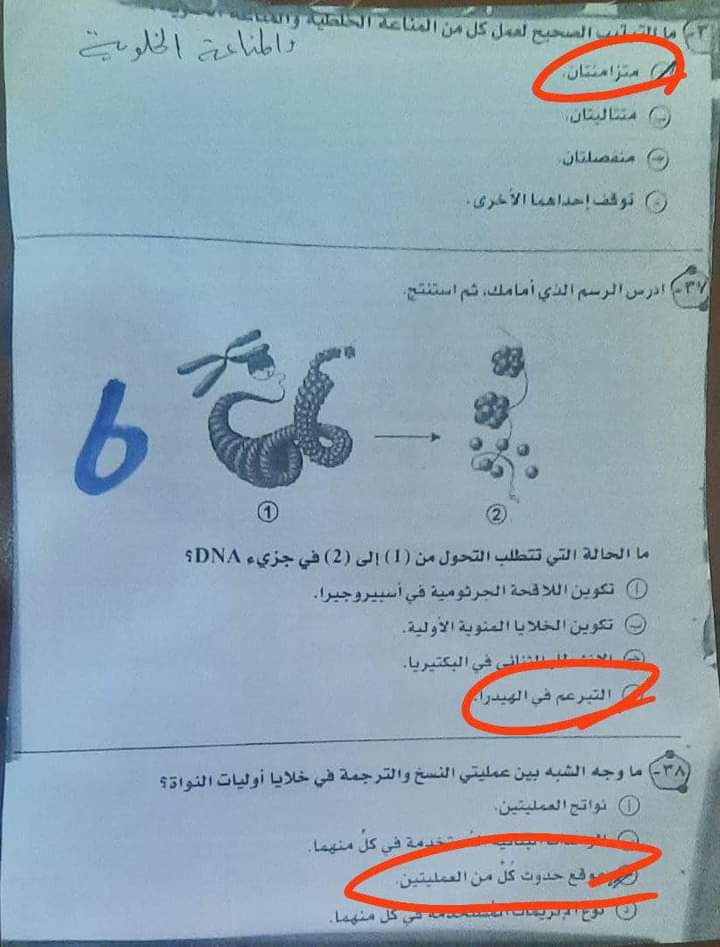 ٣- ما الترتيب الصحيح لعمل كل من المناعة الخلطية والمناعة
والمناعة الخلوية
متزامنتان.
ب متتاليتان.
ج منفصلتان.
د توقف إحداهما الأخرى.
٣٧- ادرس الرسم الذي أمامك، ثم استنتج.
6
1
2
ما الحالة التي تتطلب التحول من (1) إلى (2) في جزيء DNA؟
أ تكوين اللاقحة الجرثومية في أسبيروجيرا.
ب تكوين الخلايا المنوية الأولية.
ج الانشطار الثنائي في البكتيريا.
التبرعم في الهيدرا.
٣٨- ما وجه الشبه بين عمليتي النسخ والترجمة في خلايا أوليات النواة؟
أ نواتج العمليتين.
المستخدمة في كلُ منهما.
موقع حدوث كُلُ من العمليتين.
د نوع الإنزيمات المستخدمة في كل منهما.